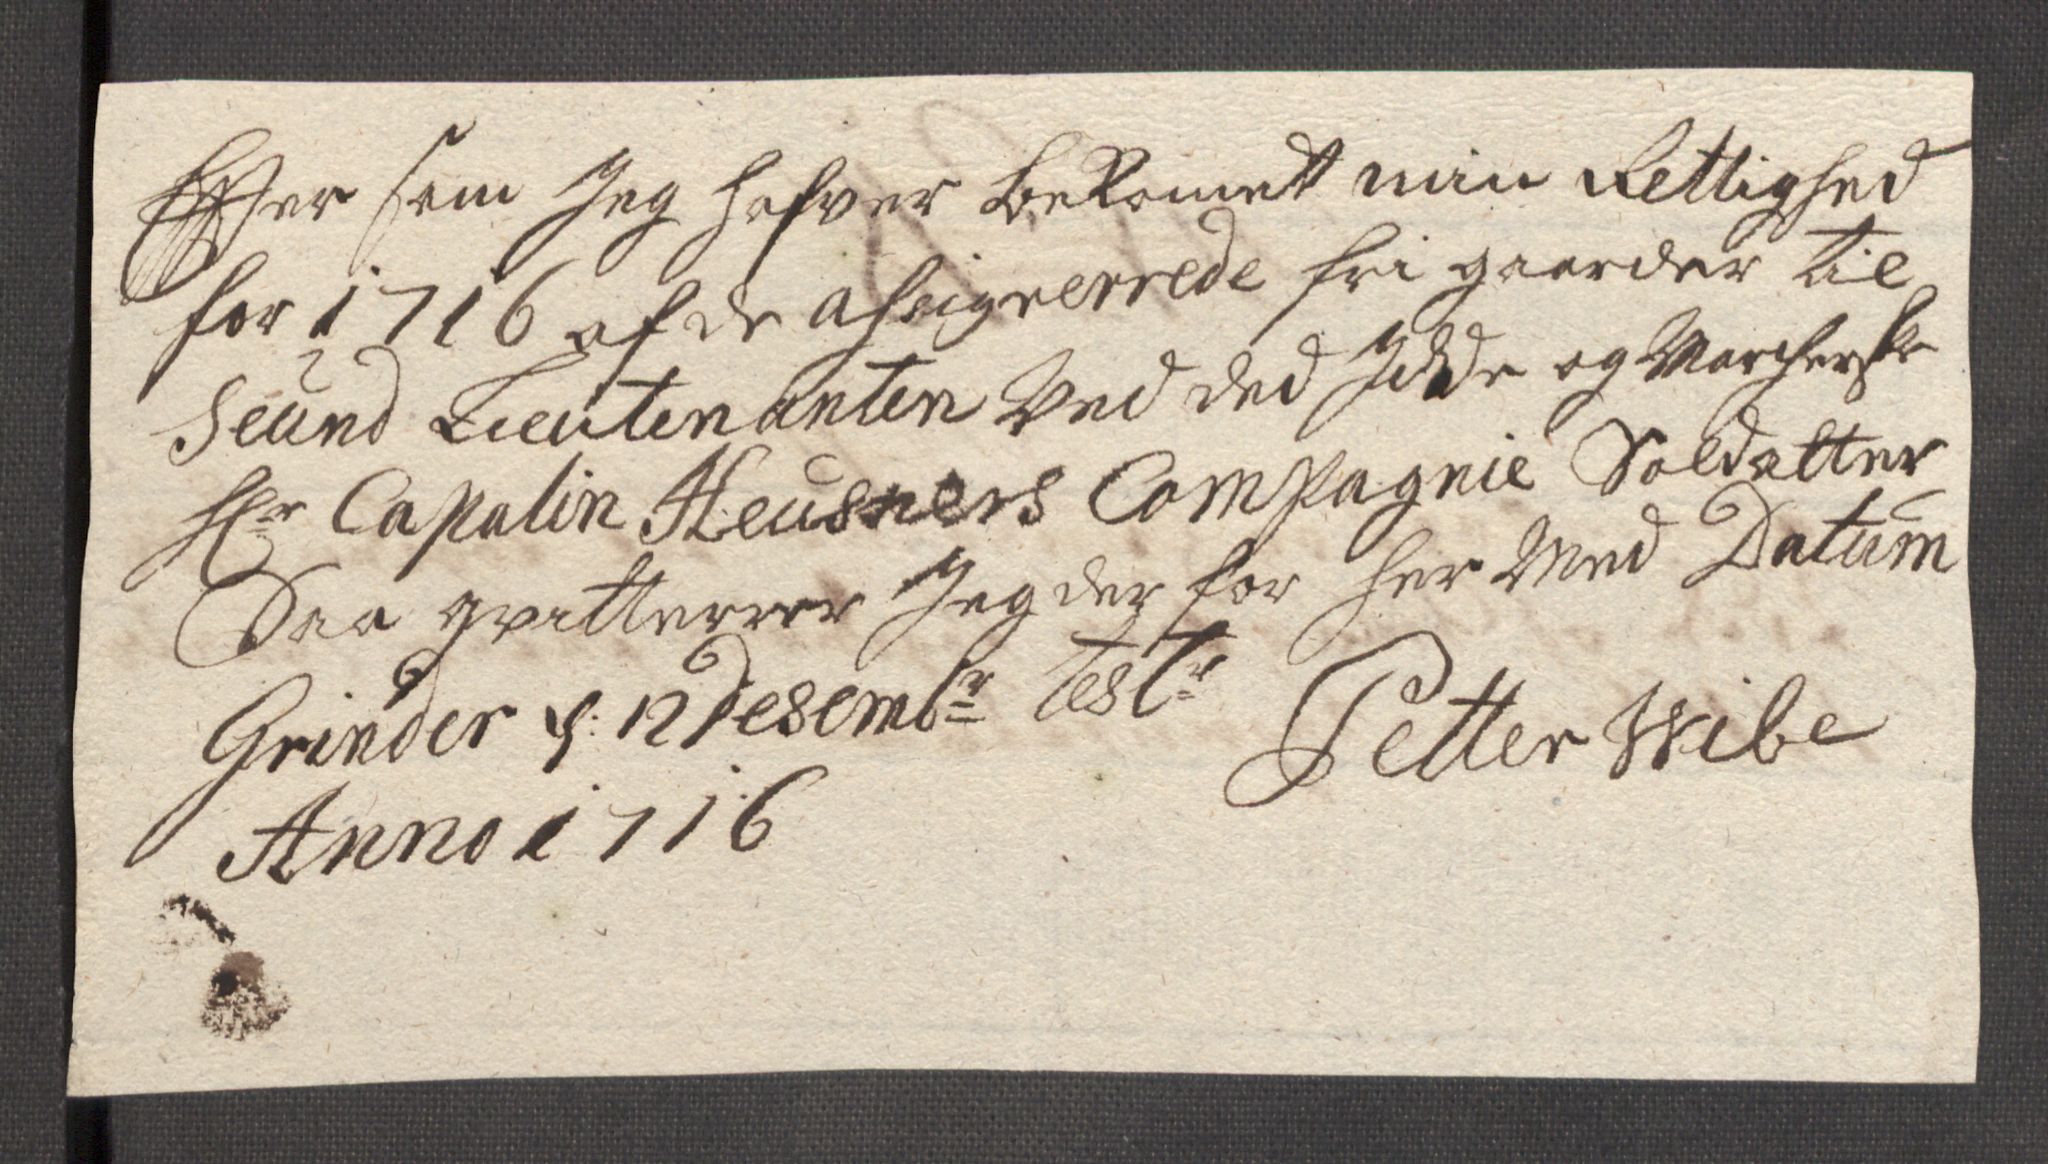 Effter som Jeg hafver bekomett min Rettighed
for 1716 af de assigneerrede fri gaarder til
Seünd Lieutenanten Ved ded Idde og Marcherske
Hr Capatin Heusners Compagnie Soldatter
Saa qvitterrer Jeg der for her Med Datüm
Grinder d: 12 Desembr
Petter Wibe
Anno 1716